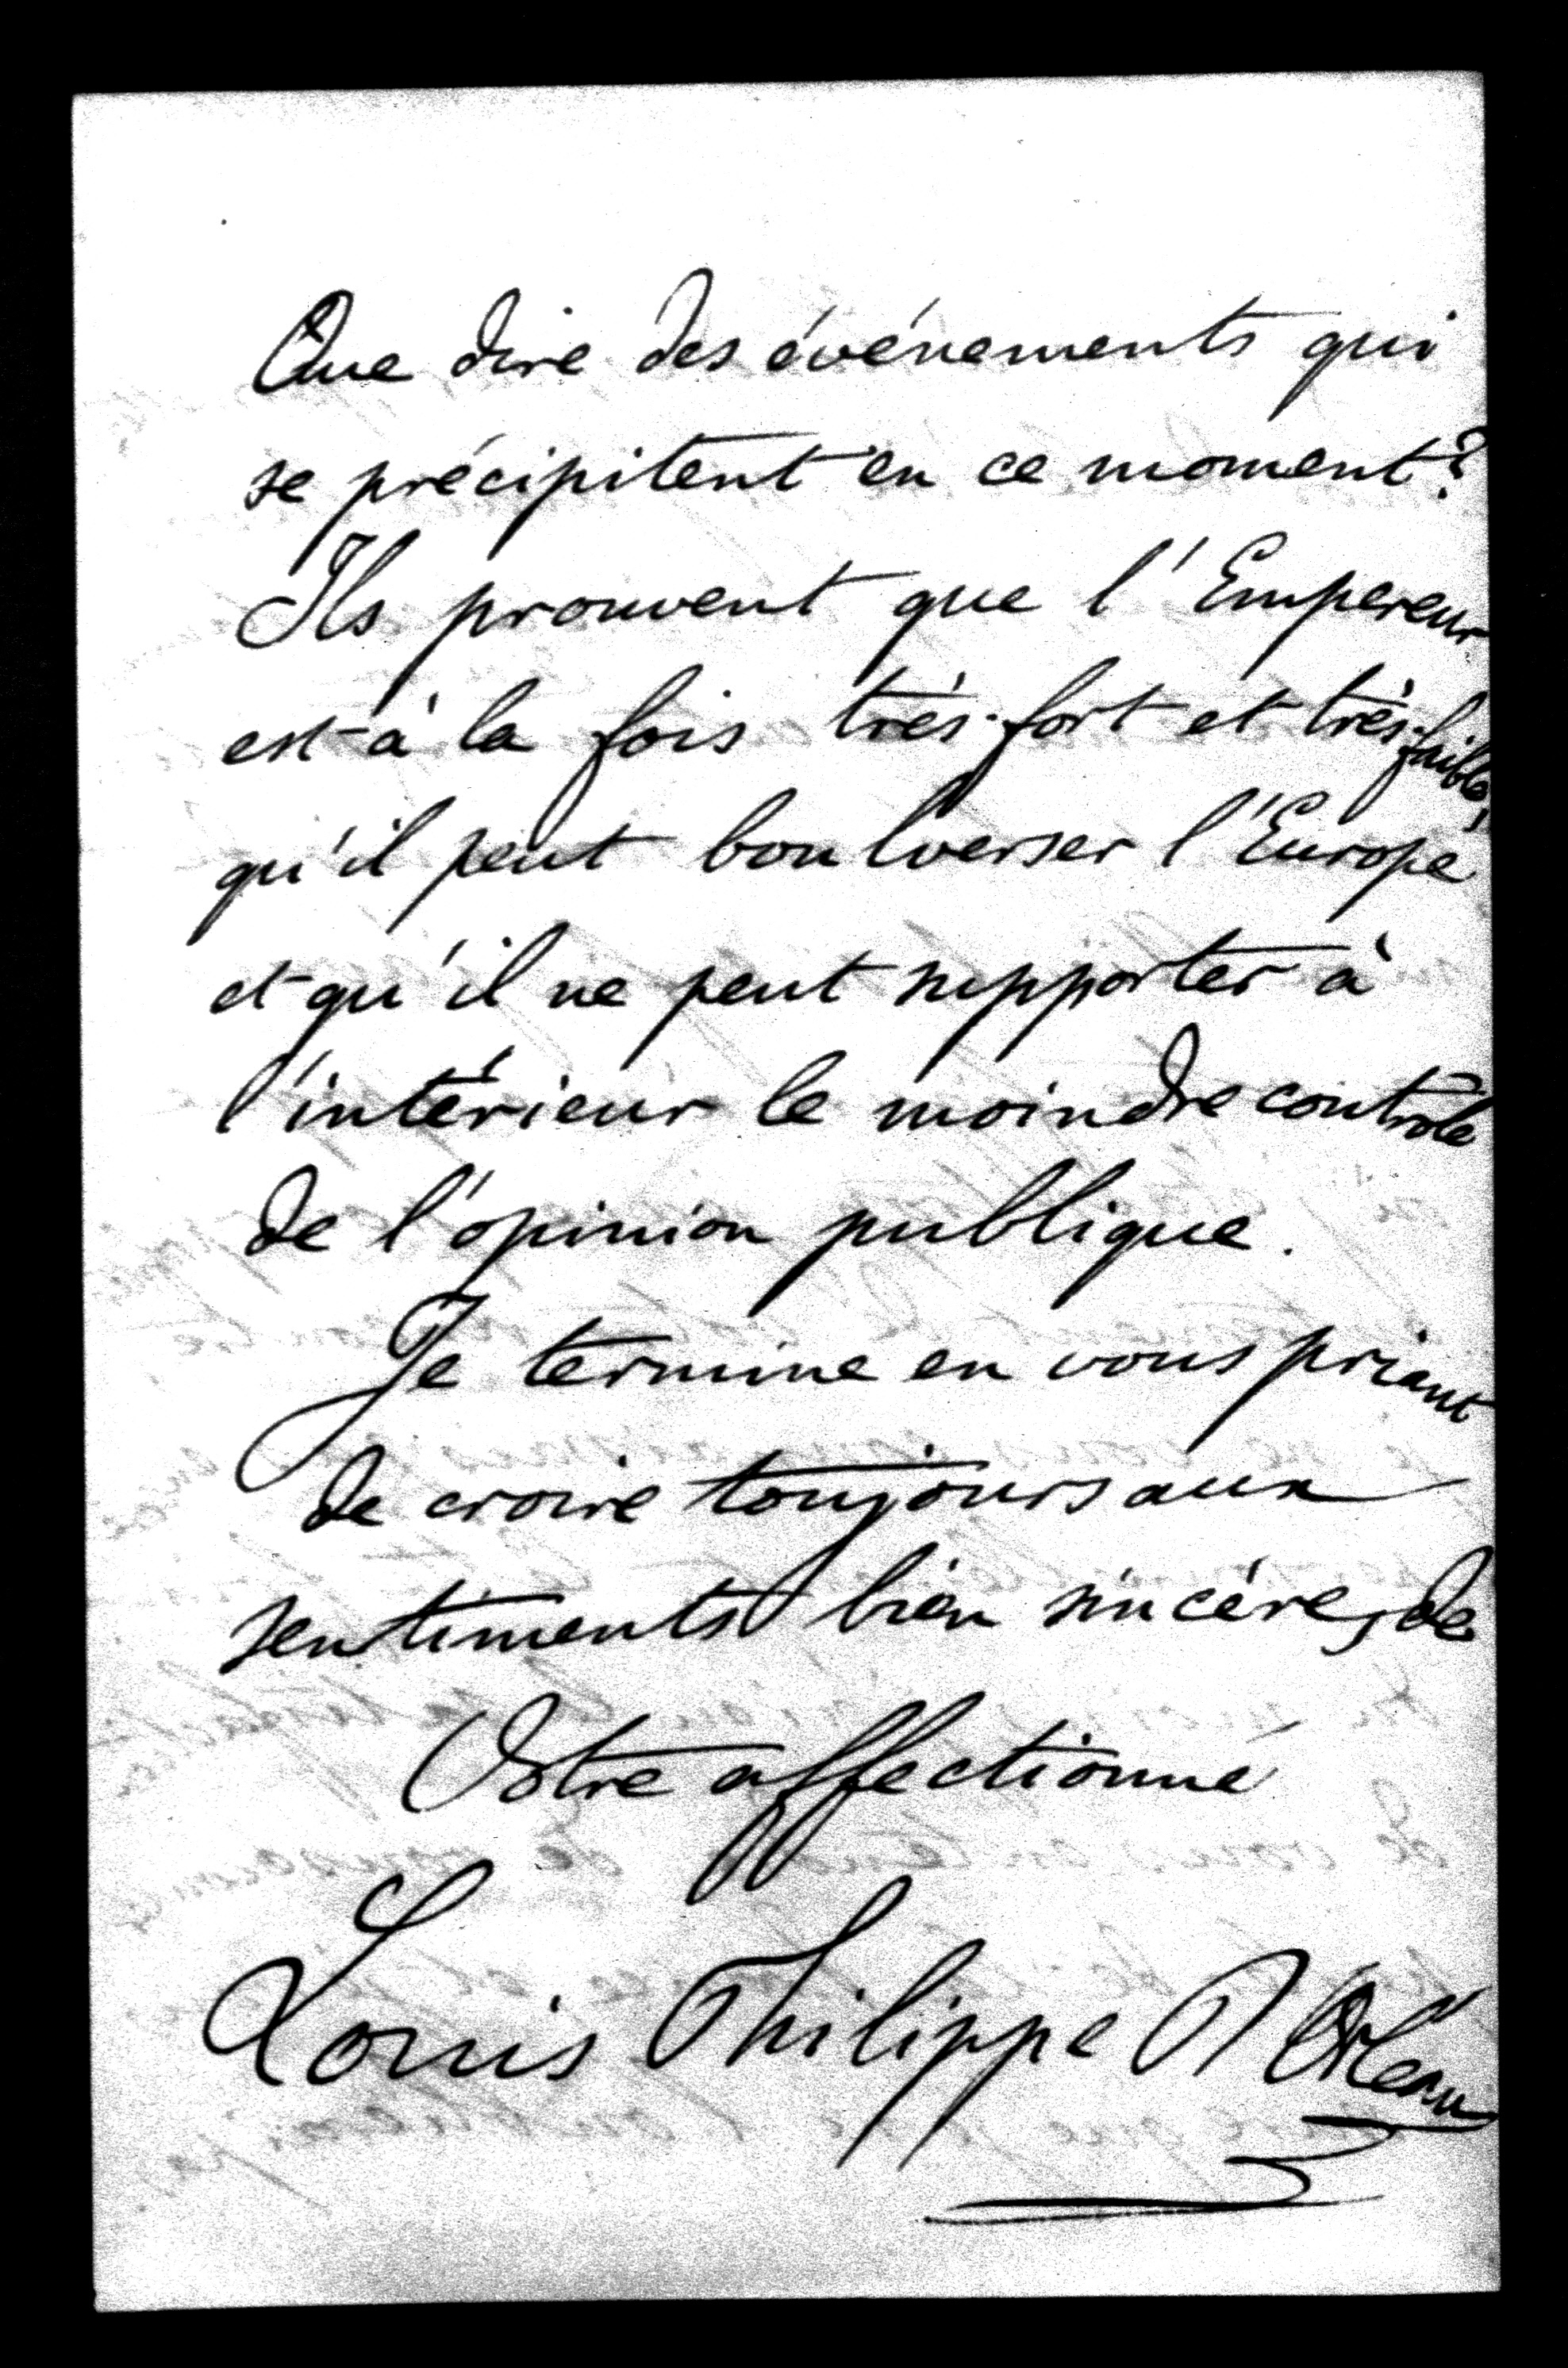 Que dire des événements qui
se précipitent en ce moment?
Ils prouvent que l'Empereur
est à la fois très-fort et très-faible,
qu'il peut boulverser l'Europe
et qu'il ne peut supporter à
l'intérieur le moindre contrôle
de l'opinion publique.
Je termine en vous priant
de croire toujours aux
sentiments bien sincères de
Votre affectionné
Louis Philippe d'Orléans